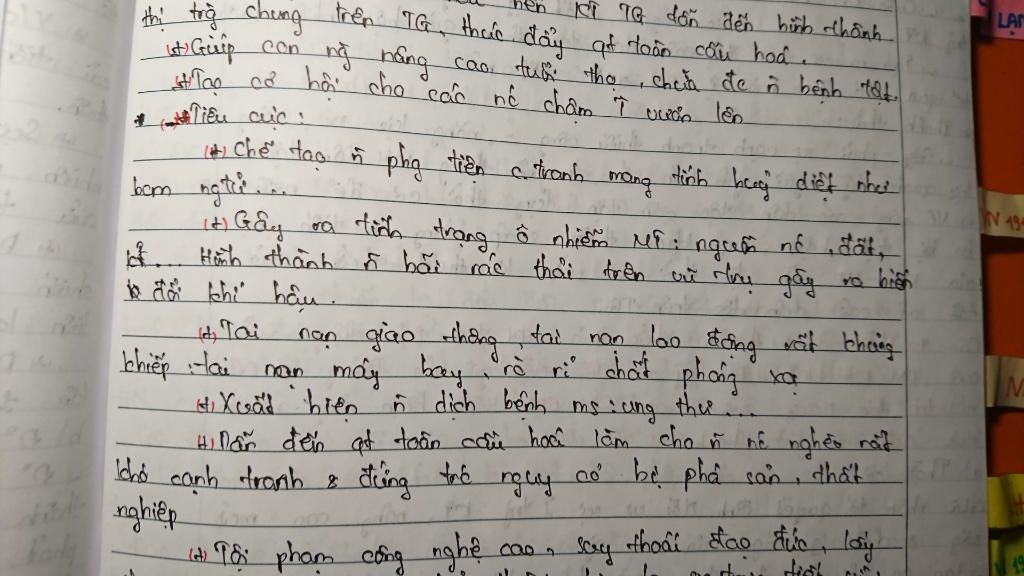 nền KT TG dẫn đến hình thành
thị trg chung trên TG, thúc đẩy qt toàn cầu hoá.
(+) Giúp con ng nâng cao tuổi thọ, chữa đc n bệnh tật.
(+) Tạo cơ hội cho các nc chậm T vươn lên
* (-) Tiêu cực:
(+) Chế tạo n phg tiện c.tranh mang tính huỷ diệt như
bom ngtử...
(+) Gây ra tình trạng ô nhiễm MT: nguồn nc, đất,
kk... Hình thành n bãi rác thải trên vũ trụ gây ra biến
đổi khí hậu.
(+) Tai nạn giao thông, tai nạn lao động rất khủng
khiếp: tai nạn máy bay, rò rỉ chất phóng xạ
(+) Xuất hiện n dịch bệnh ms: ung thư...
(+) Dẫn đến qt toàn cầu hoá làm cho n nc nghèo rất
khó cạnh tranh & đứng trc nguy cơ bị phá sản, thất
nghiệp
(+) Tội phạm công nghệ cao, suy thoái đạo đức, lây
LẠN
N 194
N
H
N 19